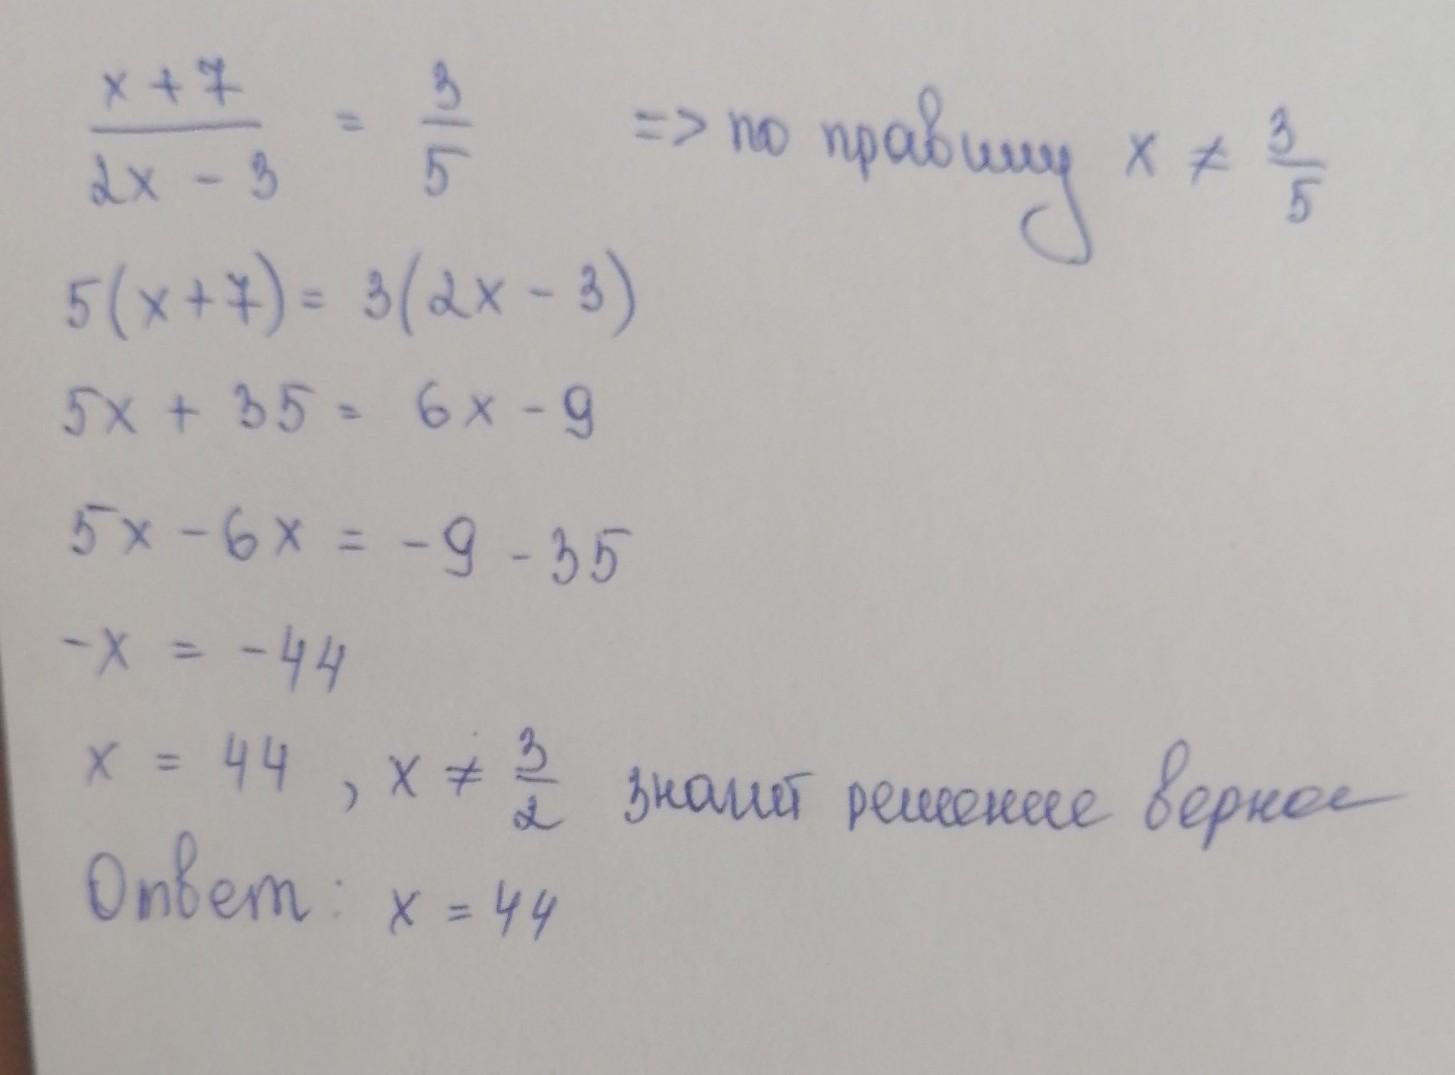 x + 7 / 2x - 3 = 3 / 5 => по правилу x ≠ 3 / 5
5(x+7) = 3(2x - 3)
5x + 35 = 6x - 9
5x - 6x = -9 - 35
-x = -44
x = 44, x ≠ 3 / 2 значит решение верное
Ответ: x = 44